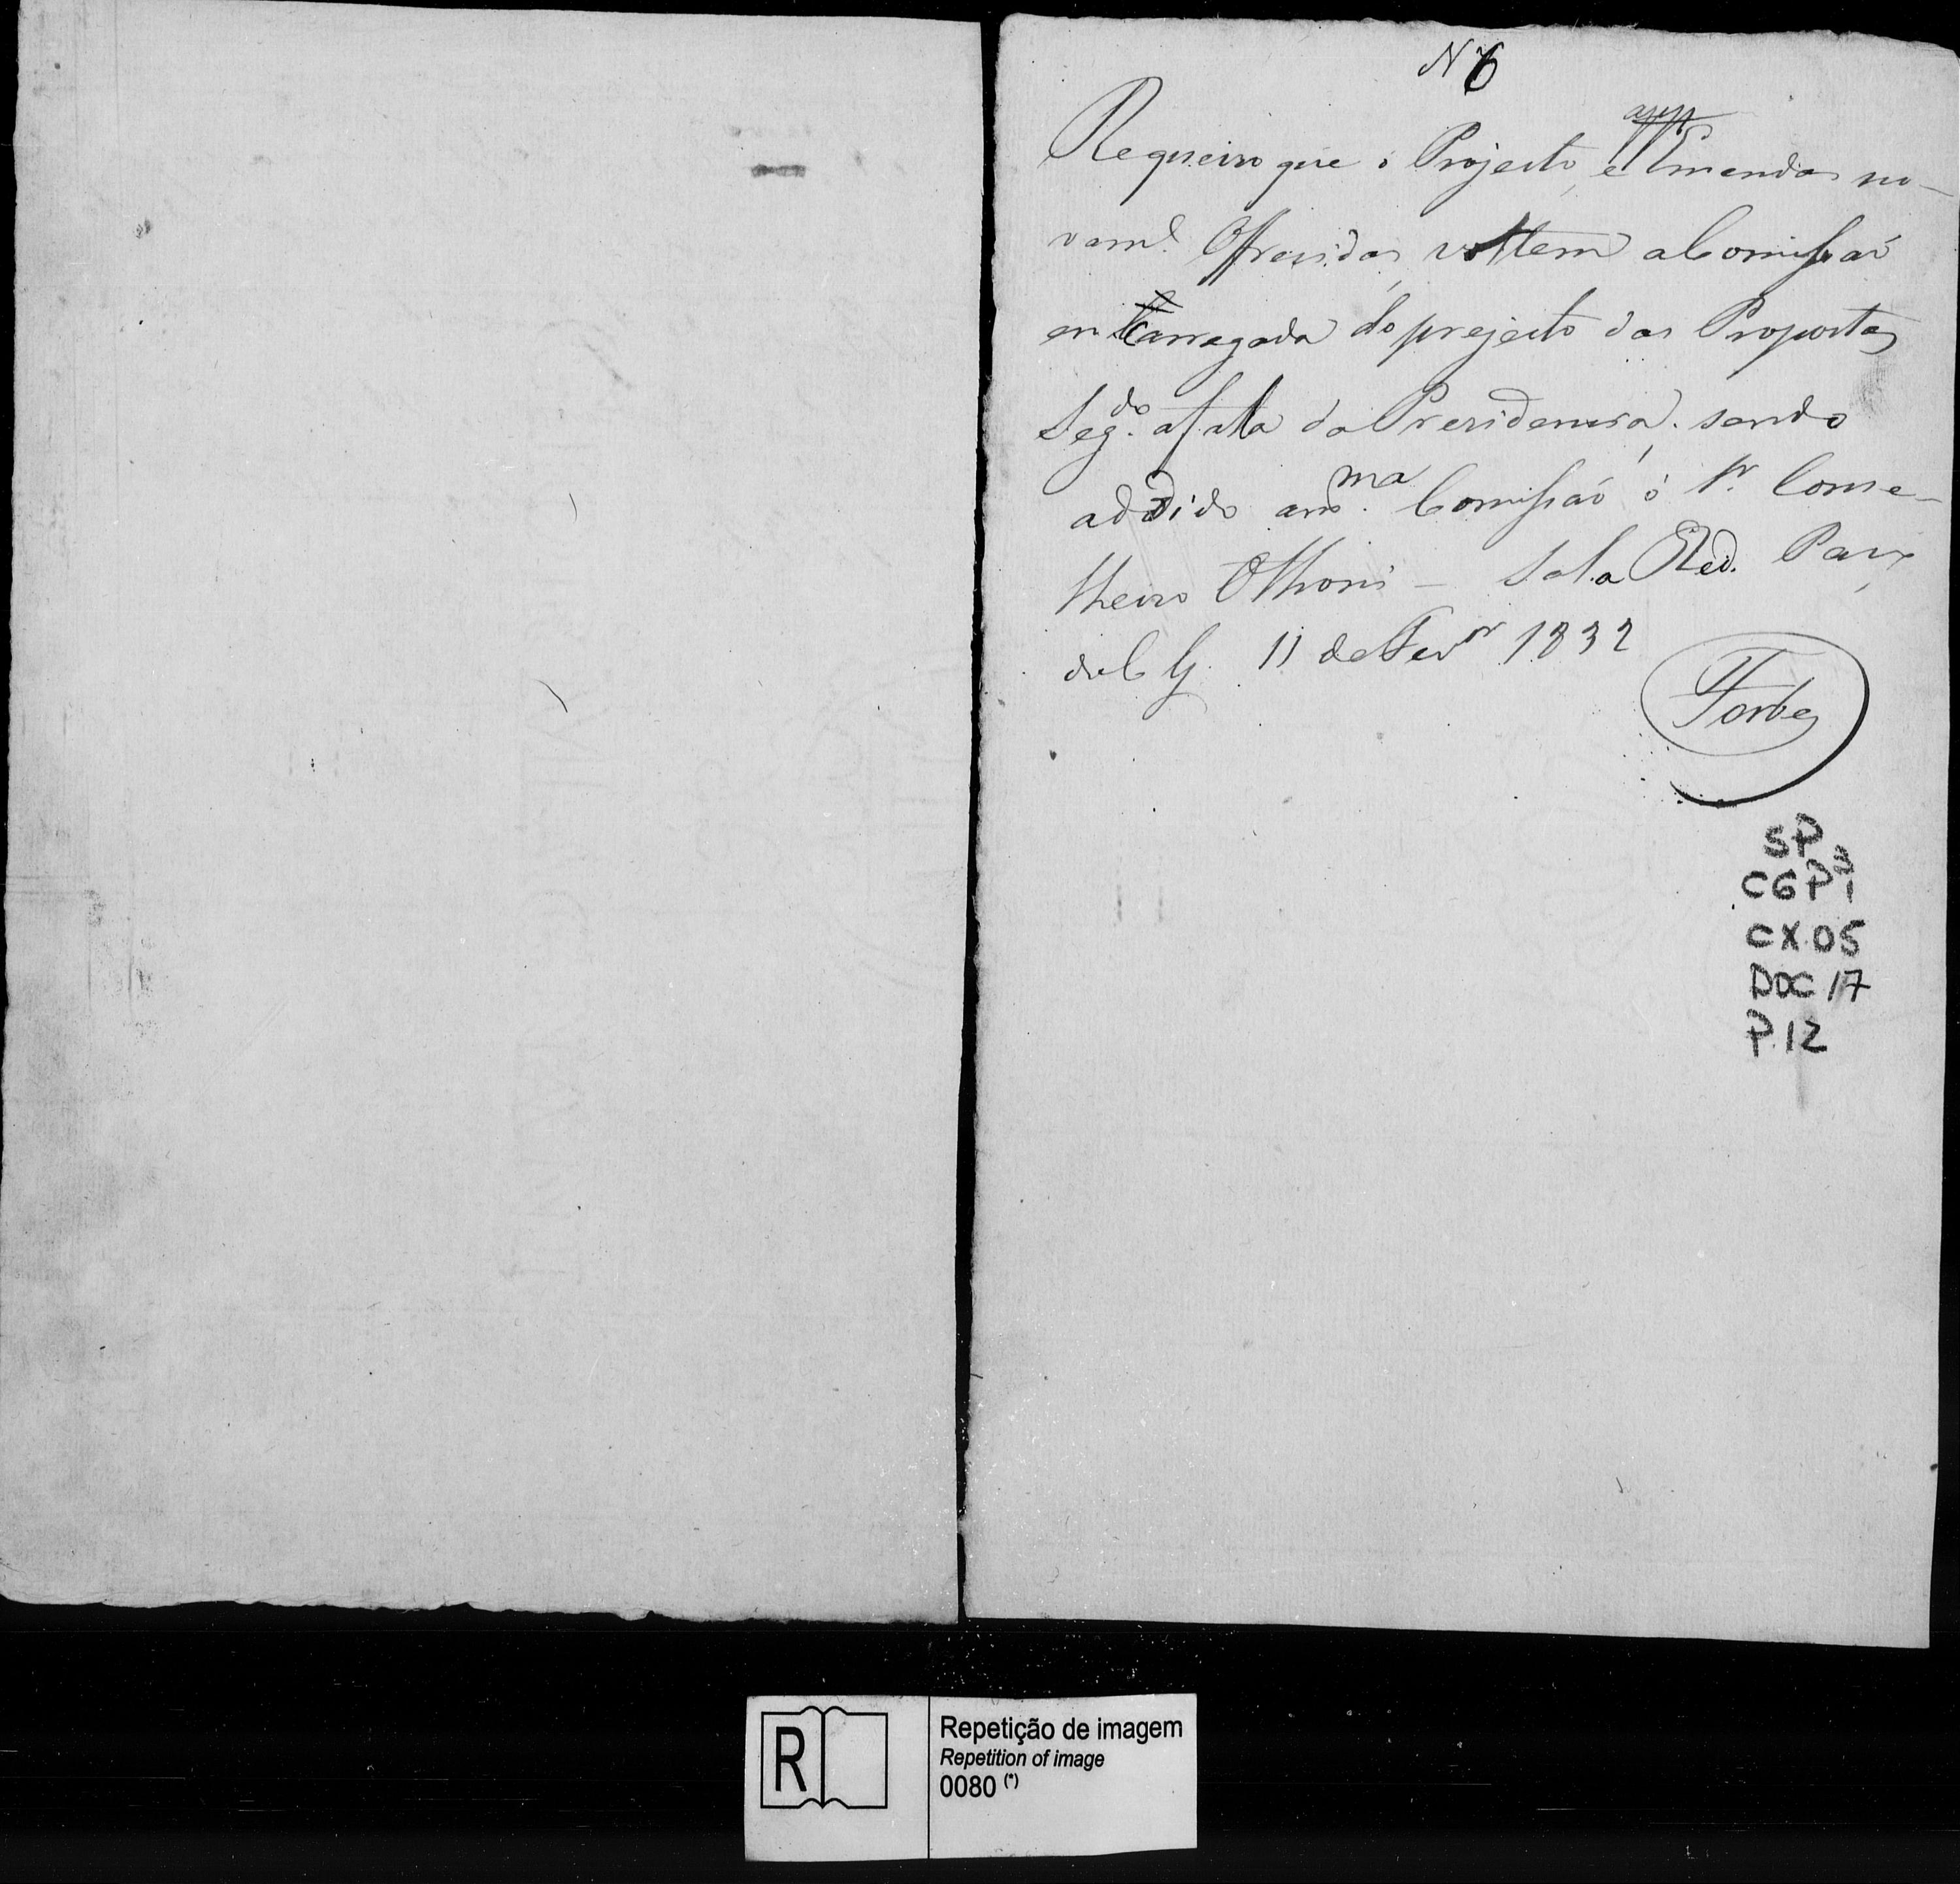 N 6
Requeiro que o Projecto, e Emendas no-
vam.e Offrecidas, voltem a Comissaõ
encarregada do projecto das Propostas
Seg.do a fala da Presidencia. sendo
addido a m.ma Comissaõ o Sr. Conse-
lheiro Othoni - Sala Paço
do C G. 11 de Fevr 1832
Torres
SP
CGP 3
1
CX.05
DOC 17
P.12
R
Repetição de imagem
Repetition of image
0080 (*)